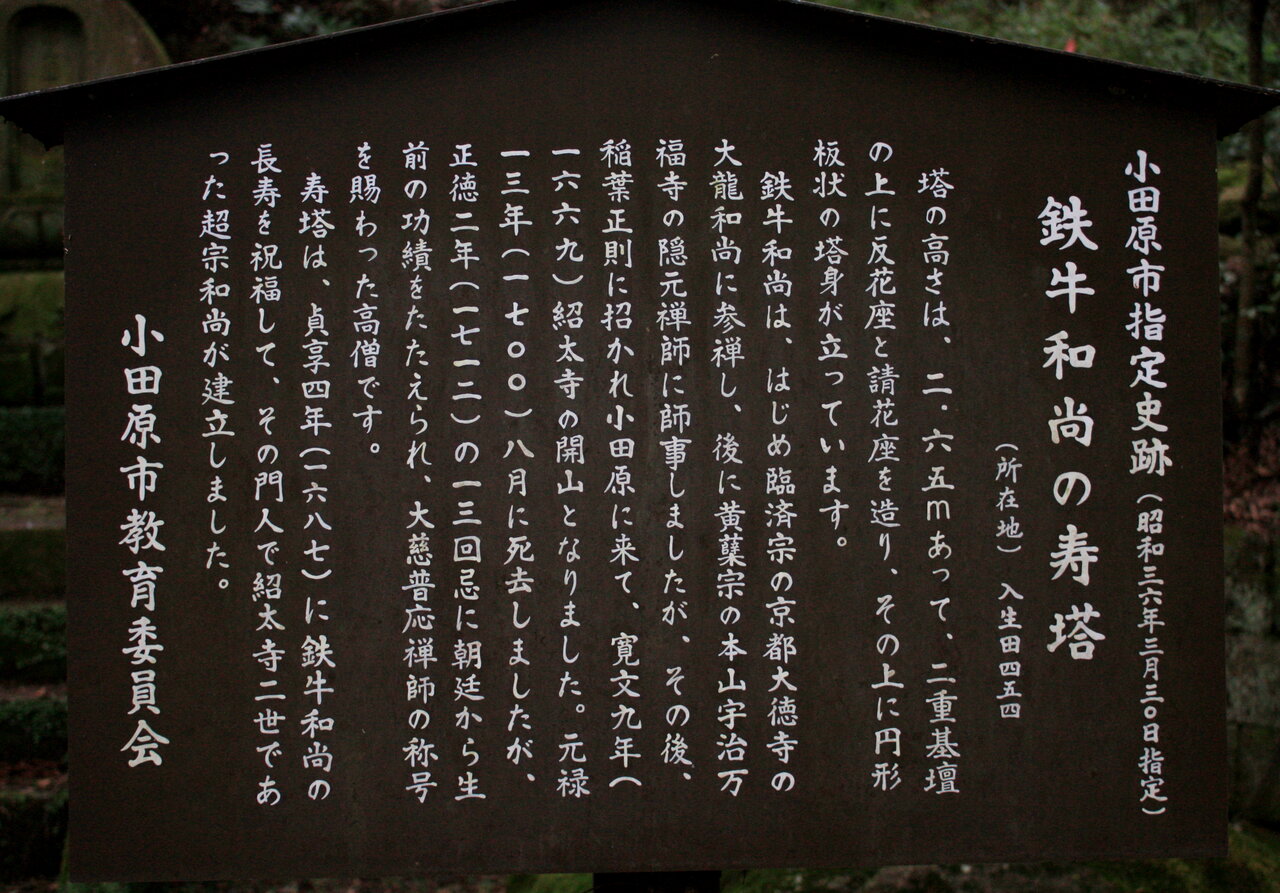 小田原市指定史跡(昭和三六年三月三〇日指定)
鉄牛和尚の寿塔
(所在地) 入生田四五四
塔の高さは、二.六五mあって、二重基壇
の上に反花座と請花座を造り、その上に円形
板状の塔身が立っています。
鉄牛和尚は、はじめ臨済宗の京都大徳寺の
大龍和尚に参禅し、後に黄檗宗の本山宇治万
福寺の隠元禅師に師事しましたが、その後、
稲葉正則に招かれ小田原に来て、寛文九年(
一六六九)紹太寺の開山となりました。元禄
一三年(一七〇〇)八月に死去しましたが、
正徳二年(一七一二)の一三回忌に朝廷から生
前の功績をたたえられ、大慈普応禅師の称号
を賜わった高僧です。
寿塔は、貞享四年(一六八七)に鉄牛和尚の
長寿を祝福して、その門人で紹太寺二世であ
った超宗和尚が建立しました。
小田原市教育委員会